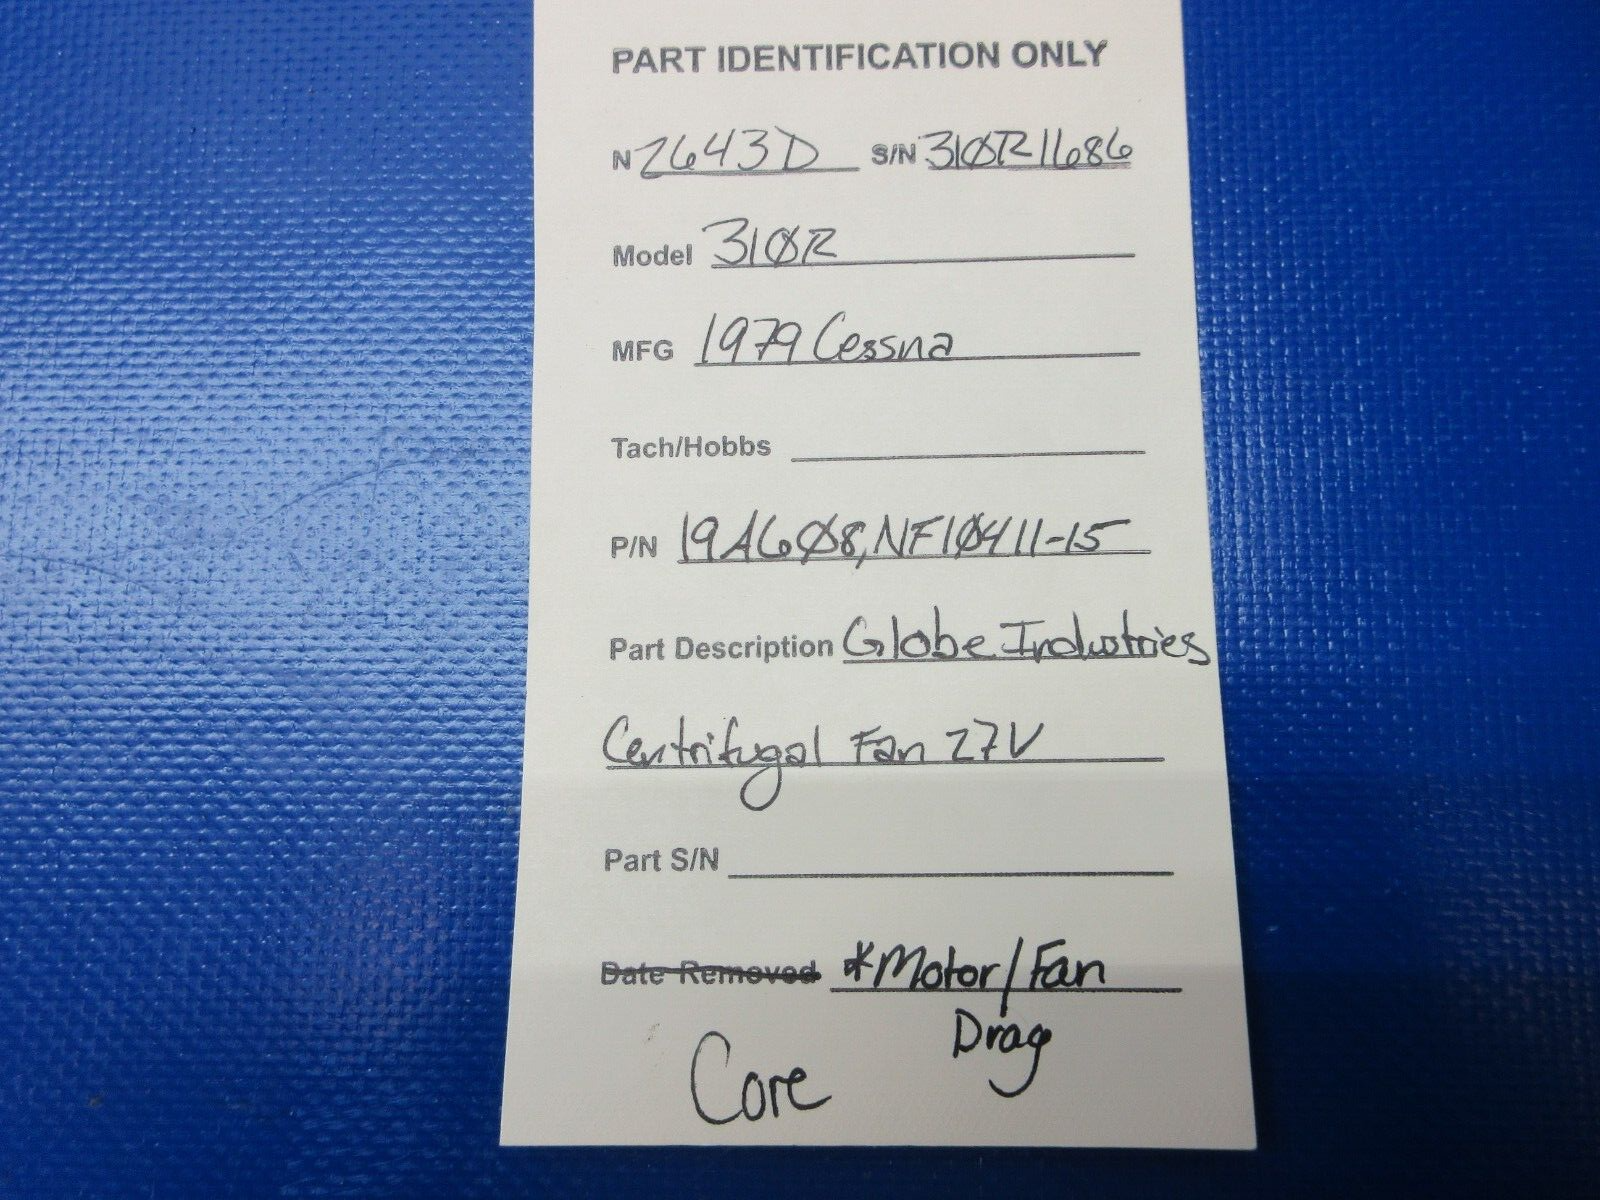 PART IDENTIFICATION ONLY
N 2643D S/N 310R1686
Model 310R
MFG 1979 Cessna
Tach/Hobbs
P/N 19A608, NF10411-15
Part Description Globe Industries
Centrifugal Fan 27V
Part S/N
Date Removed *Motor/Fan
Drag
Core